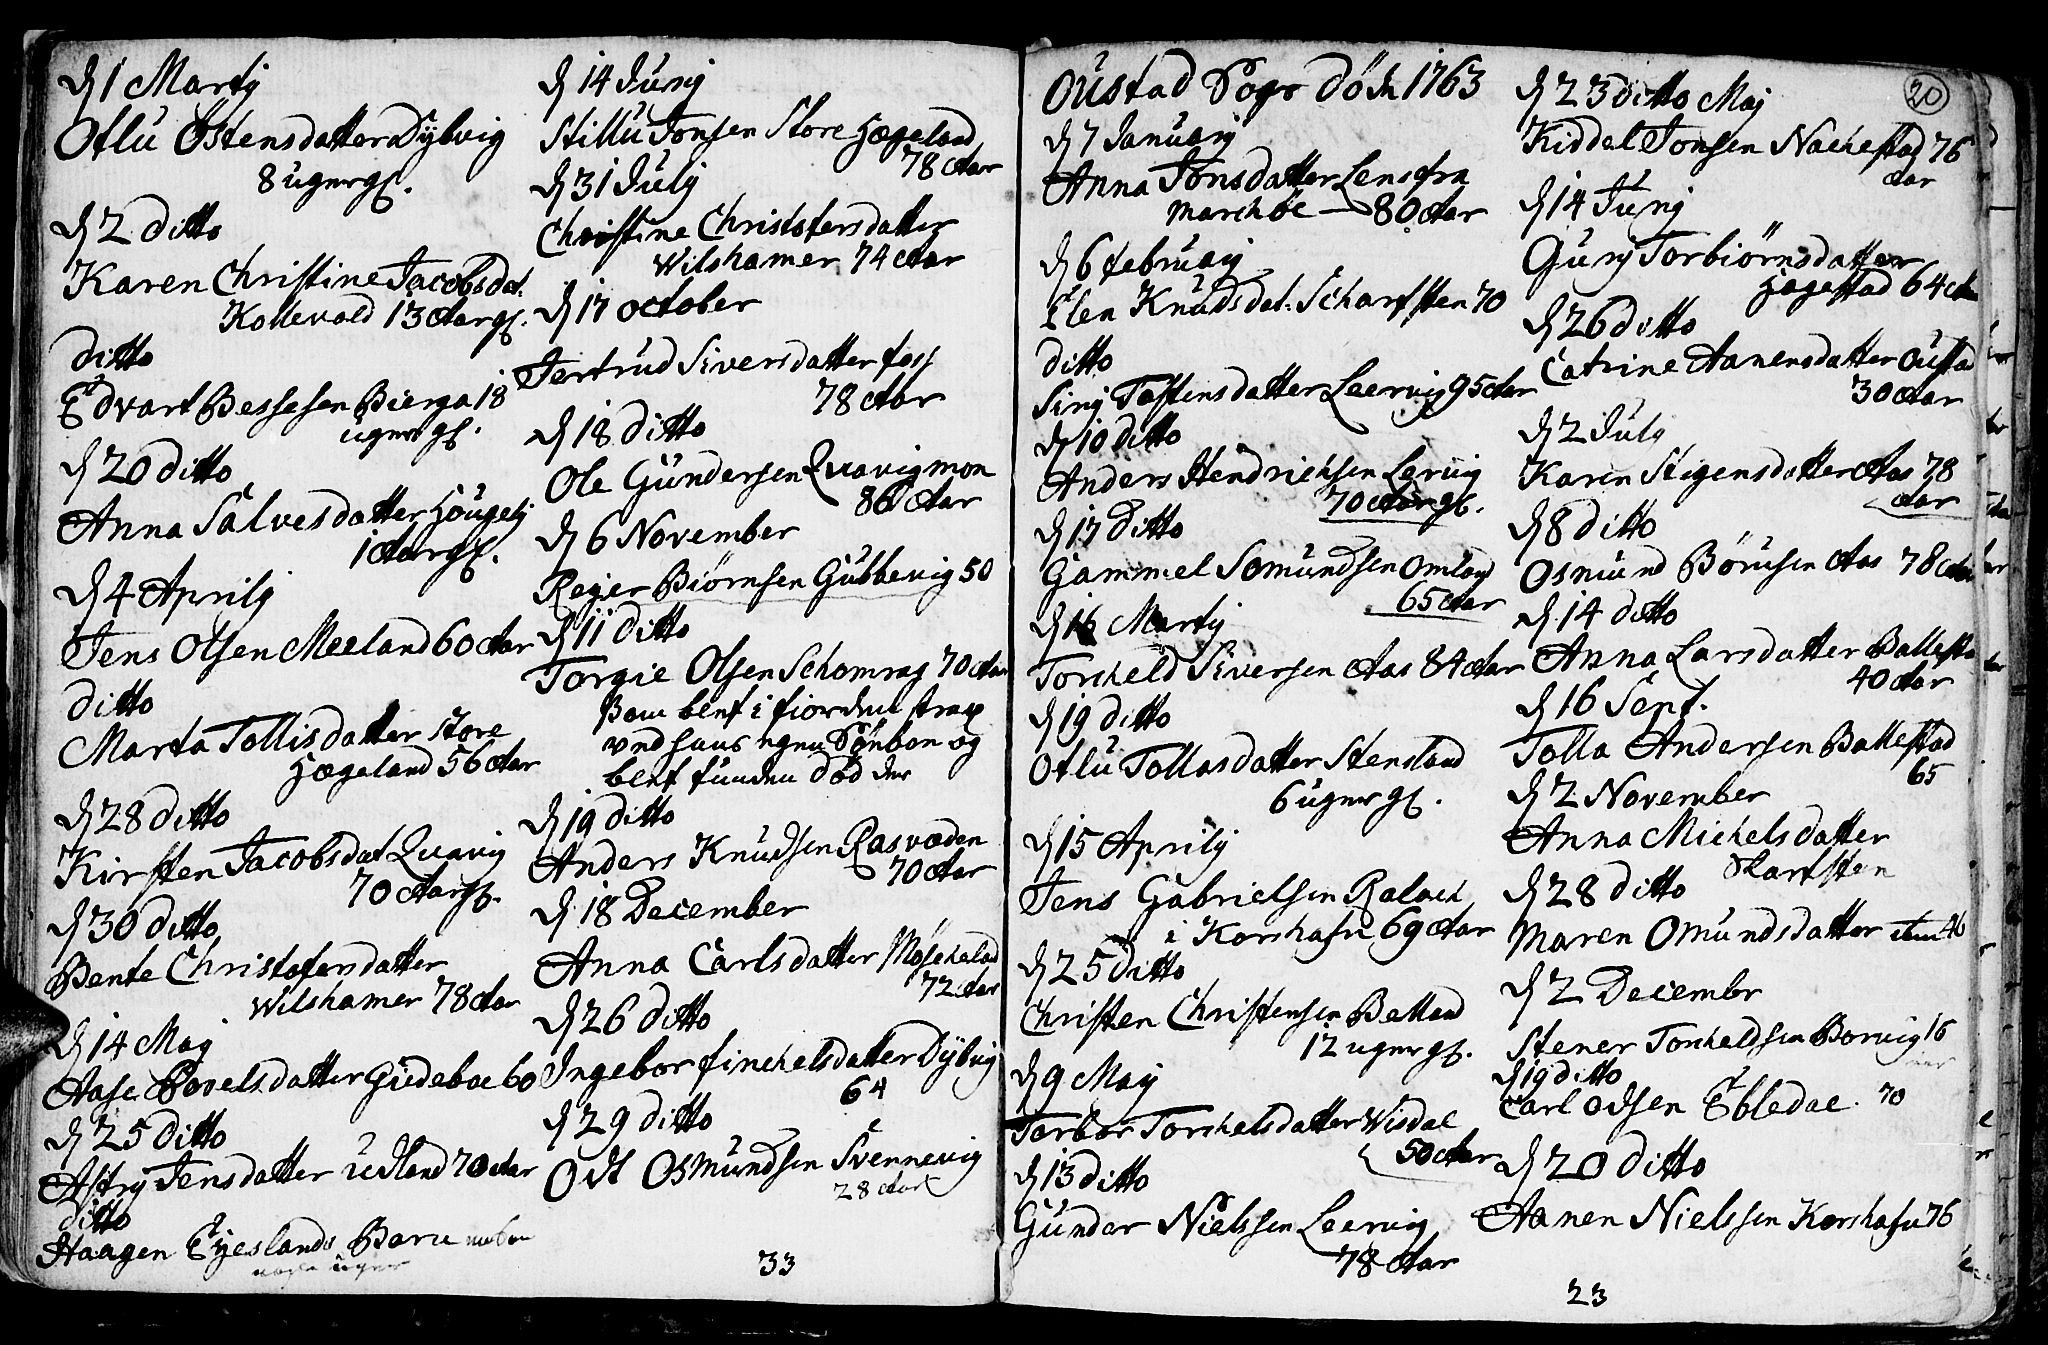 d 1 Martij
Otlu Östensdatter Dybvig
8 uger gl.
d 2 ditto
Karen Christine Jacobsdat.
Kollevold 13 Aar gl.
ditto
Edvart Bessesen Bierga 18
uger gl.
d 20 ditto
Anna Salvesdatter Hougelj
1 Aar gl.
d 4 Aprilj
Jens Olsen Meeland 60 Aar
ditto
Marta Tollisdatter Store
Hægeland 56 Aar
d 28 ditto
Kirsten Jacobsdat Qvavig
70 Aar gl.
d 30 ditto
Bente Christofersdatter
Wilshamer 78 Aar
d 14 Maj
Aase Povelsdatter Giedeboe 60
d 25 ditto
Astrj Jensdatter Udland 70 Aar
ditto
Haagen Eyeslands Barn
uger
d 14 Junj
Stillu Jonsen Store Hægeland
78 Aar
d 31 Julj
Christine Christofersdatter
Wilshamer 74 Aar
d 17 october
Jertrud Siversdatter foss
78 Aar
d 18 ditto
Ole Gundersen Qvavigmon
80 Aar
d 6 November
Rejer Biörnsen Gubbevig 50
d 11 ditto
Torgie Olsen Schomrag 70 Aar
Som blef i fiorden strax
ved hans egen og
blef funden död der
d 19 ditto
Anders Knudsen Rasvoden
70 Aar
d 18 December
Anna Carlsdatter Möscheland
72 Aar
d 26 ditto
Ingebor finchelsdatter Dÿbvig
64
d 29 ditto
Odt Osmundsen Svennevig
28 Aar
33
Oustad Sogn Döde 1763
20
d 7 Januarj
Anna Jonsdatter Lens fra
marchöe — 80 Aar
d 6 februarj
Elen Knudsdat. Scharfsten 70
ditto
Sirj Tostensdatter Leervig 95 Aar
d 10 ditto
Anders Hendrichsen Lervig
70 Aar gl.
d 17 ditto
Gammel Somundsen Omland
65 Aar
d 16 Martj
Torcheld Siversen Aas 84 Aar
d 19 ditto
Otlu Tollasdatter Stensland
6 uger gl.
d 15 Aprilj
Jens Gabrielsen Ralach
i Korshafn 69 Aar
d 25 ditto
Christen Christensen Belland
12 uger gl.
d 9 Maij
Torbor Torchelsdatter Wisdal
50 Aar
d 13 ditto
Gunder Nielssen Leervig
78 Aar
d 23 ditto Maj
Kiddel Jonsen Nachestad 76
Aar
d 14 Junj
Gurj Torbiörnsdatter
Hægestad 64 Aar
d 26 ditto
Catrine Aanensdatter Oustad
30 Aar
d 2 Julj
Karen Stigensdatter Aas 78
Aar
d 8 ditto
Osmund Börusen Aas 78 Aar
d 14 ditto
Anna Larsdatter Ballesta
40 Aar
d 16 Sept.
Tolla Andersen Ballestad
65
d 2 November
Anna Michelsdatter
Skarfsten
d 28 ditto
Maren Omundsdatter 46
d 2 December
Stener Torcheldsen Borvig 16
d 19 ditto
Carl Odsen Ebledal. 70
d 20 ditto
Aanen Nielssen Korshafn 76
23